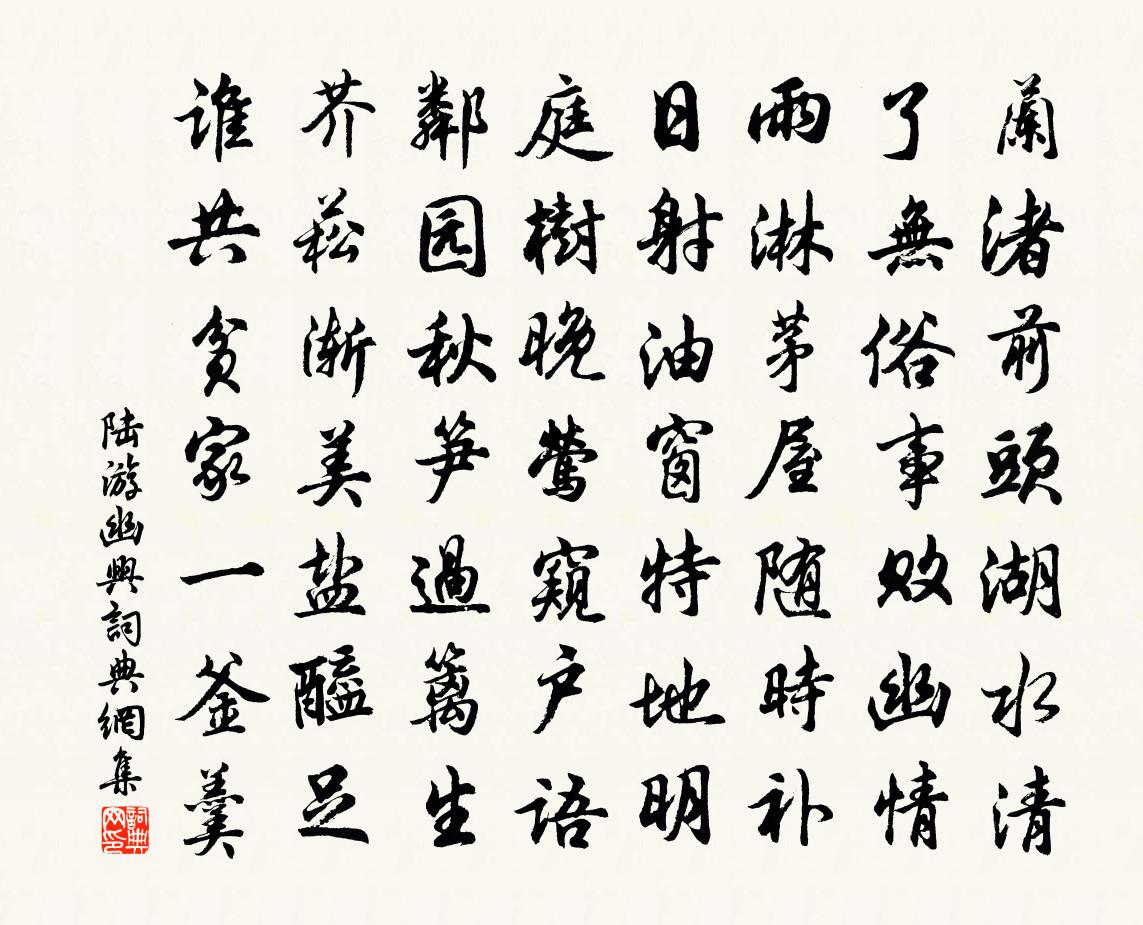 蘭渚前頭湖水清
了無俗事敗幽情
雨淋茅屋随時补
日射油窗特地明
庭樹晚鶯窺户語
鄰园秋笋過篱生
芥菘漸美盐醯足
谁共貧家一釜羹
陆游幽興詞典網集
詞典网印